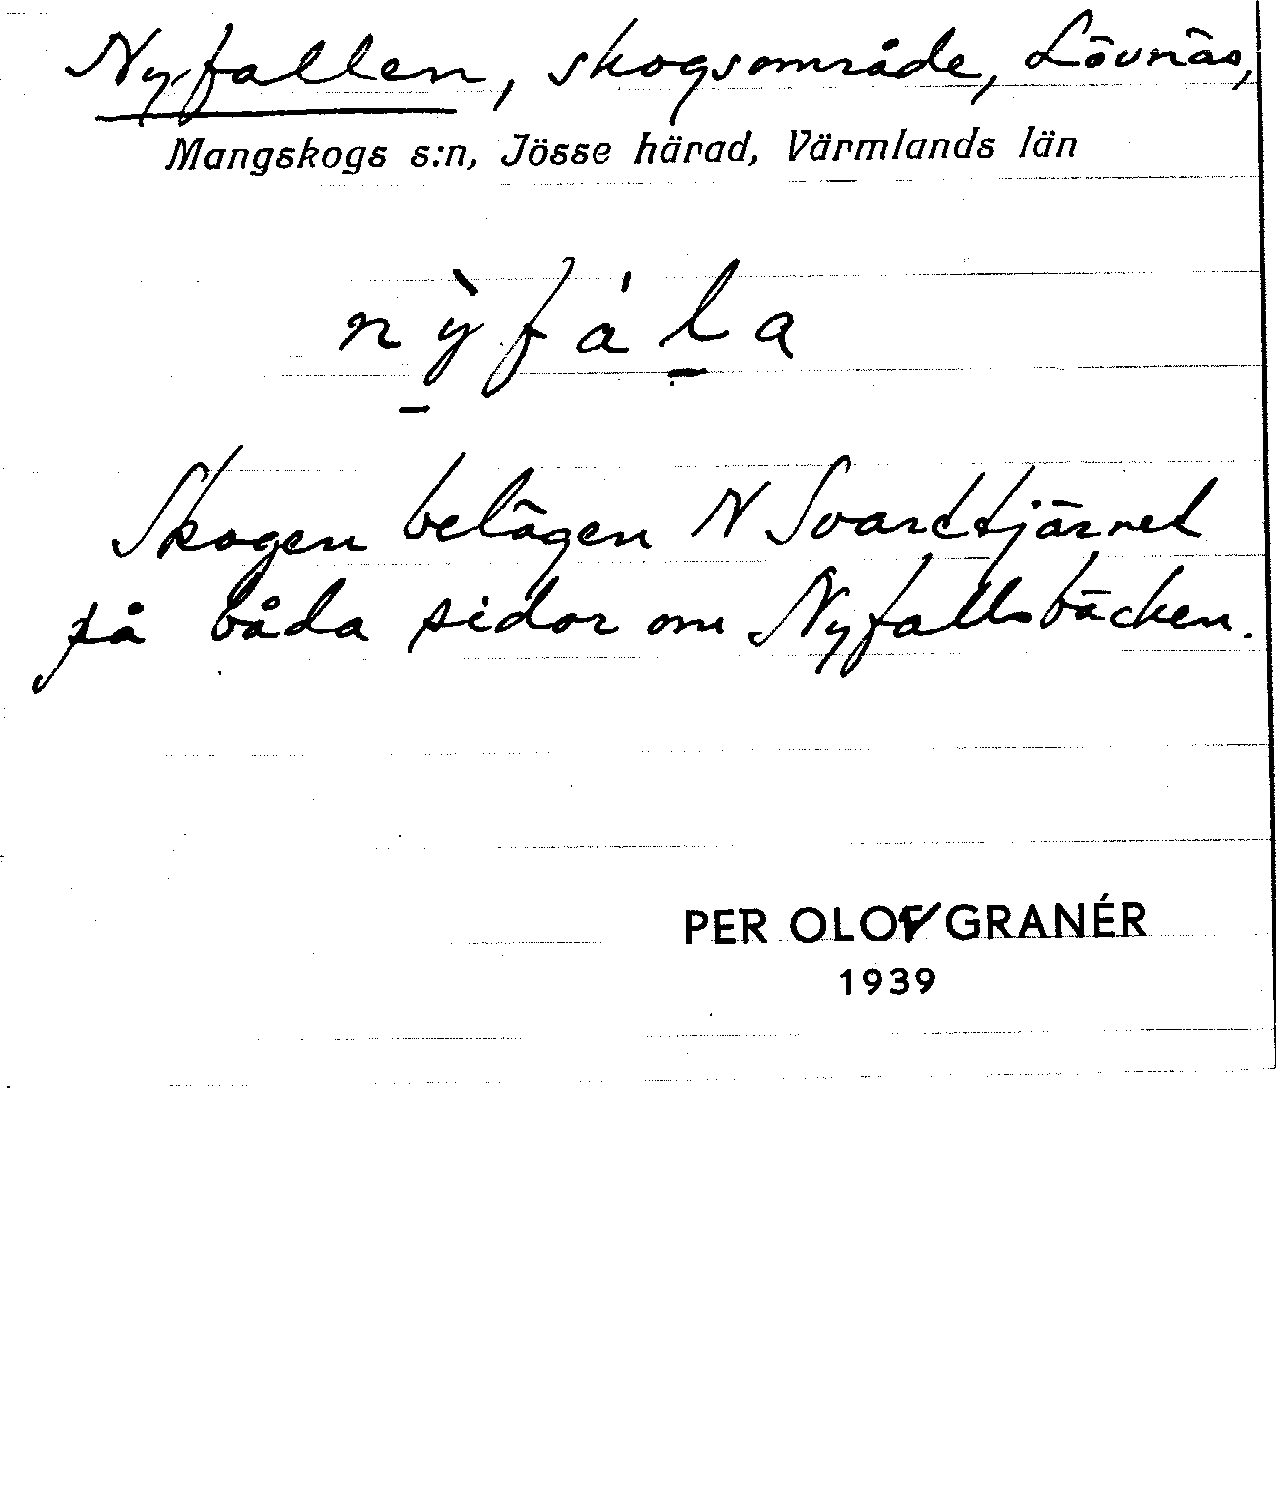 Nyfallen, skogsområde, Lövnäs,
Mangskogs s:n, Jösse härad, Värmlands län
nỳ̠fál̠a
Skogen belägen N Svarttjärnet
på båda sidor om Nyfallsbäcken.
PER OLOV GRANÉR
1939